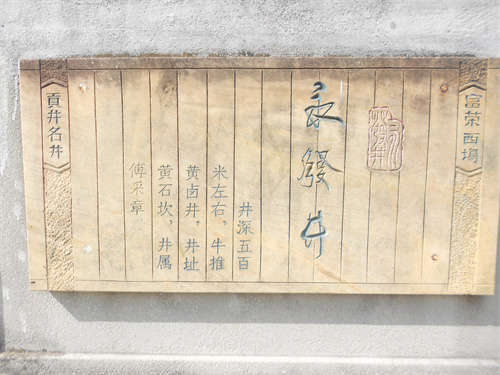 富荣西场
永發井
井深五百
米左右，牛推
黄卤井，井址
黄石坎，井属
傅采章
貢井名井